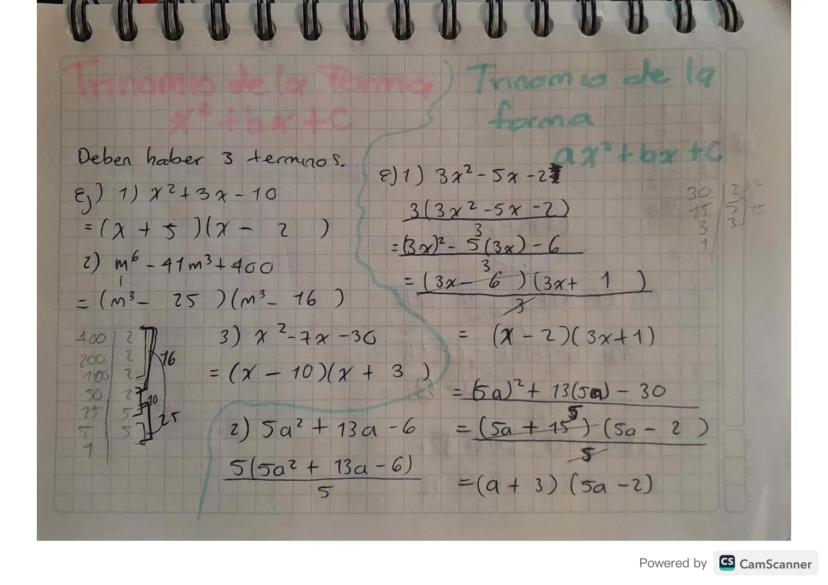 Trinomio de la Forma
x² + bx + c
Deben haber 3 terminos.
Ej) 1) x² + 3x - 10
= (x + 5 )(x - 2 )
2) m⁶ - 41m³ + 400
= (m³ - 25 )(m³ - 16 )
400 | 2
200 | 2
100 | 2
50 | 2
25 | 5
5 | 5
1
16
10
25
3) x² - 7x - 30
= (x - 10)(x + 3 )
Trinomio de la
forma
ax² + bx + c
e) 1) 3x² - 5x - 2
3(3x² - 5x - 2)
3
= (3x)² - 5(3x) - 6
3
= (3x - 6 )(3x + 1 )
3
= (x - 2)(3x + 1)
30 | 2
15 | 5
3 | 3
1
15
2) 5a² + 13a - 6
5(5a² + 13a - 6)
5
= (5a)² + 13(5a) - 30
5
= (5a + 15) (5a - 2 )
5
= (a + 3) (5a - 2)
Powered by CS CamScanner